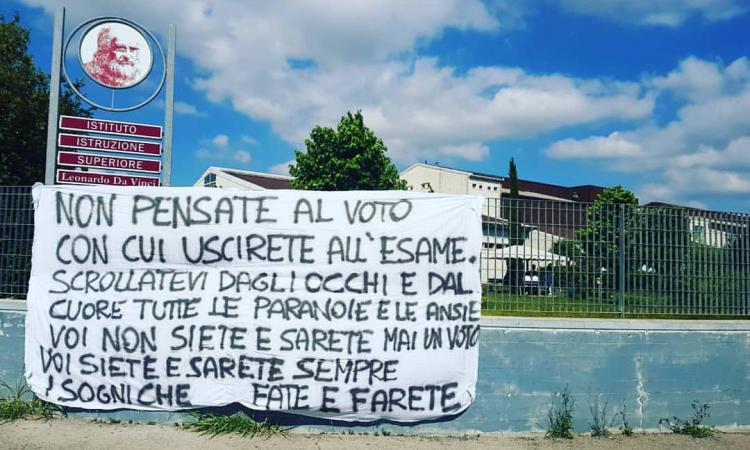 ISTITUTO
ISTRUZIONE
SUPERIORE
LEONARDO DA VINCI
NON PENSATE AL VOTO
CON CUI USCIRETE ALL'ESAME.
SCROLLATEVI DAGLI OCCHI E DAL
CUORE TUTTE LE PARANOIE E LE ANSIE
VOI NON SIETE E SARETE MAI UN VOTO
VOI SIETE E SARETE SEMPRE
I SOGNI CHE FATE E FARETE